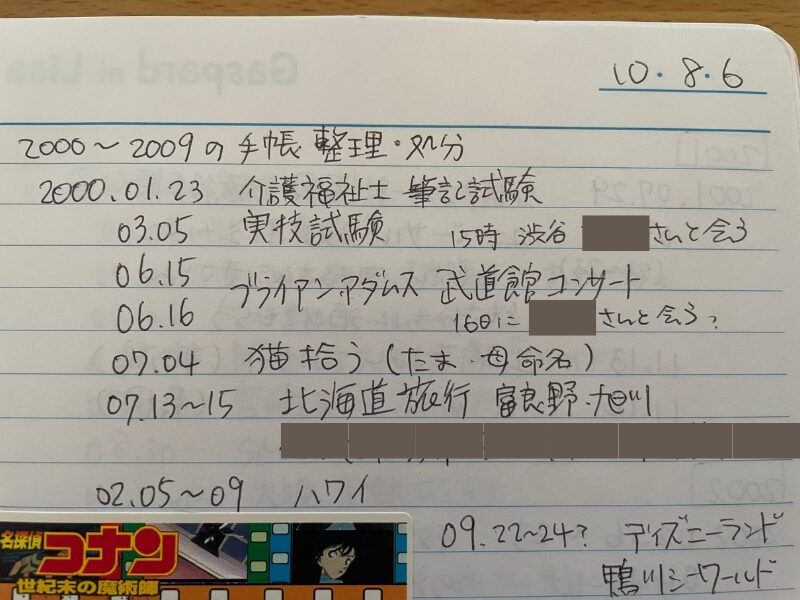 10・8・6
2000～2009の手帳 整理・処分
2000.01.23 介護福祉士 筆記試験
03.05 実技試験 15時 渋谷 さんと会う
06.15 ブライアン・アダムス 武道館コンサート
06.16 16日に さんと会う?
07.04 猫拾う(たま・母命名)
07.13～15 北海道旅行 富良野・旭川
02.05～09 ハワイ
09.22～24? ディズニーランド
鴨川シーワールド
名探偵
コナン
世紀末の魔術師